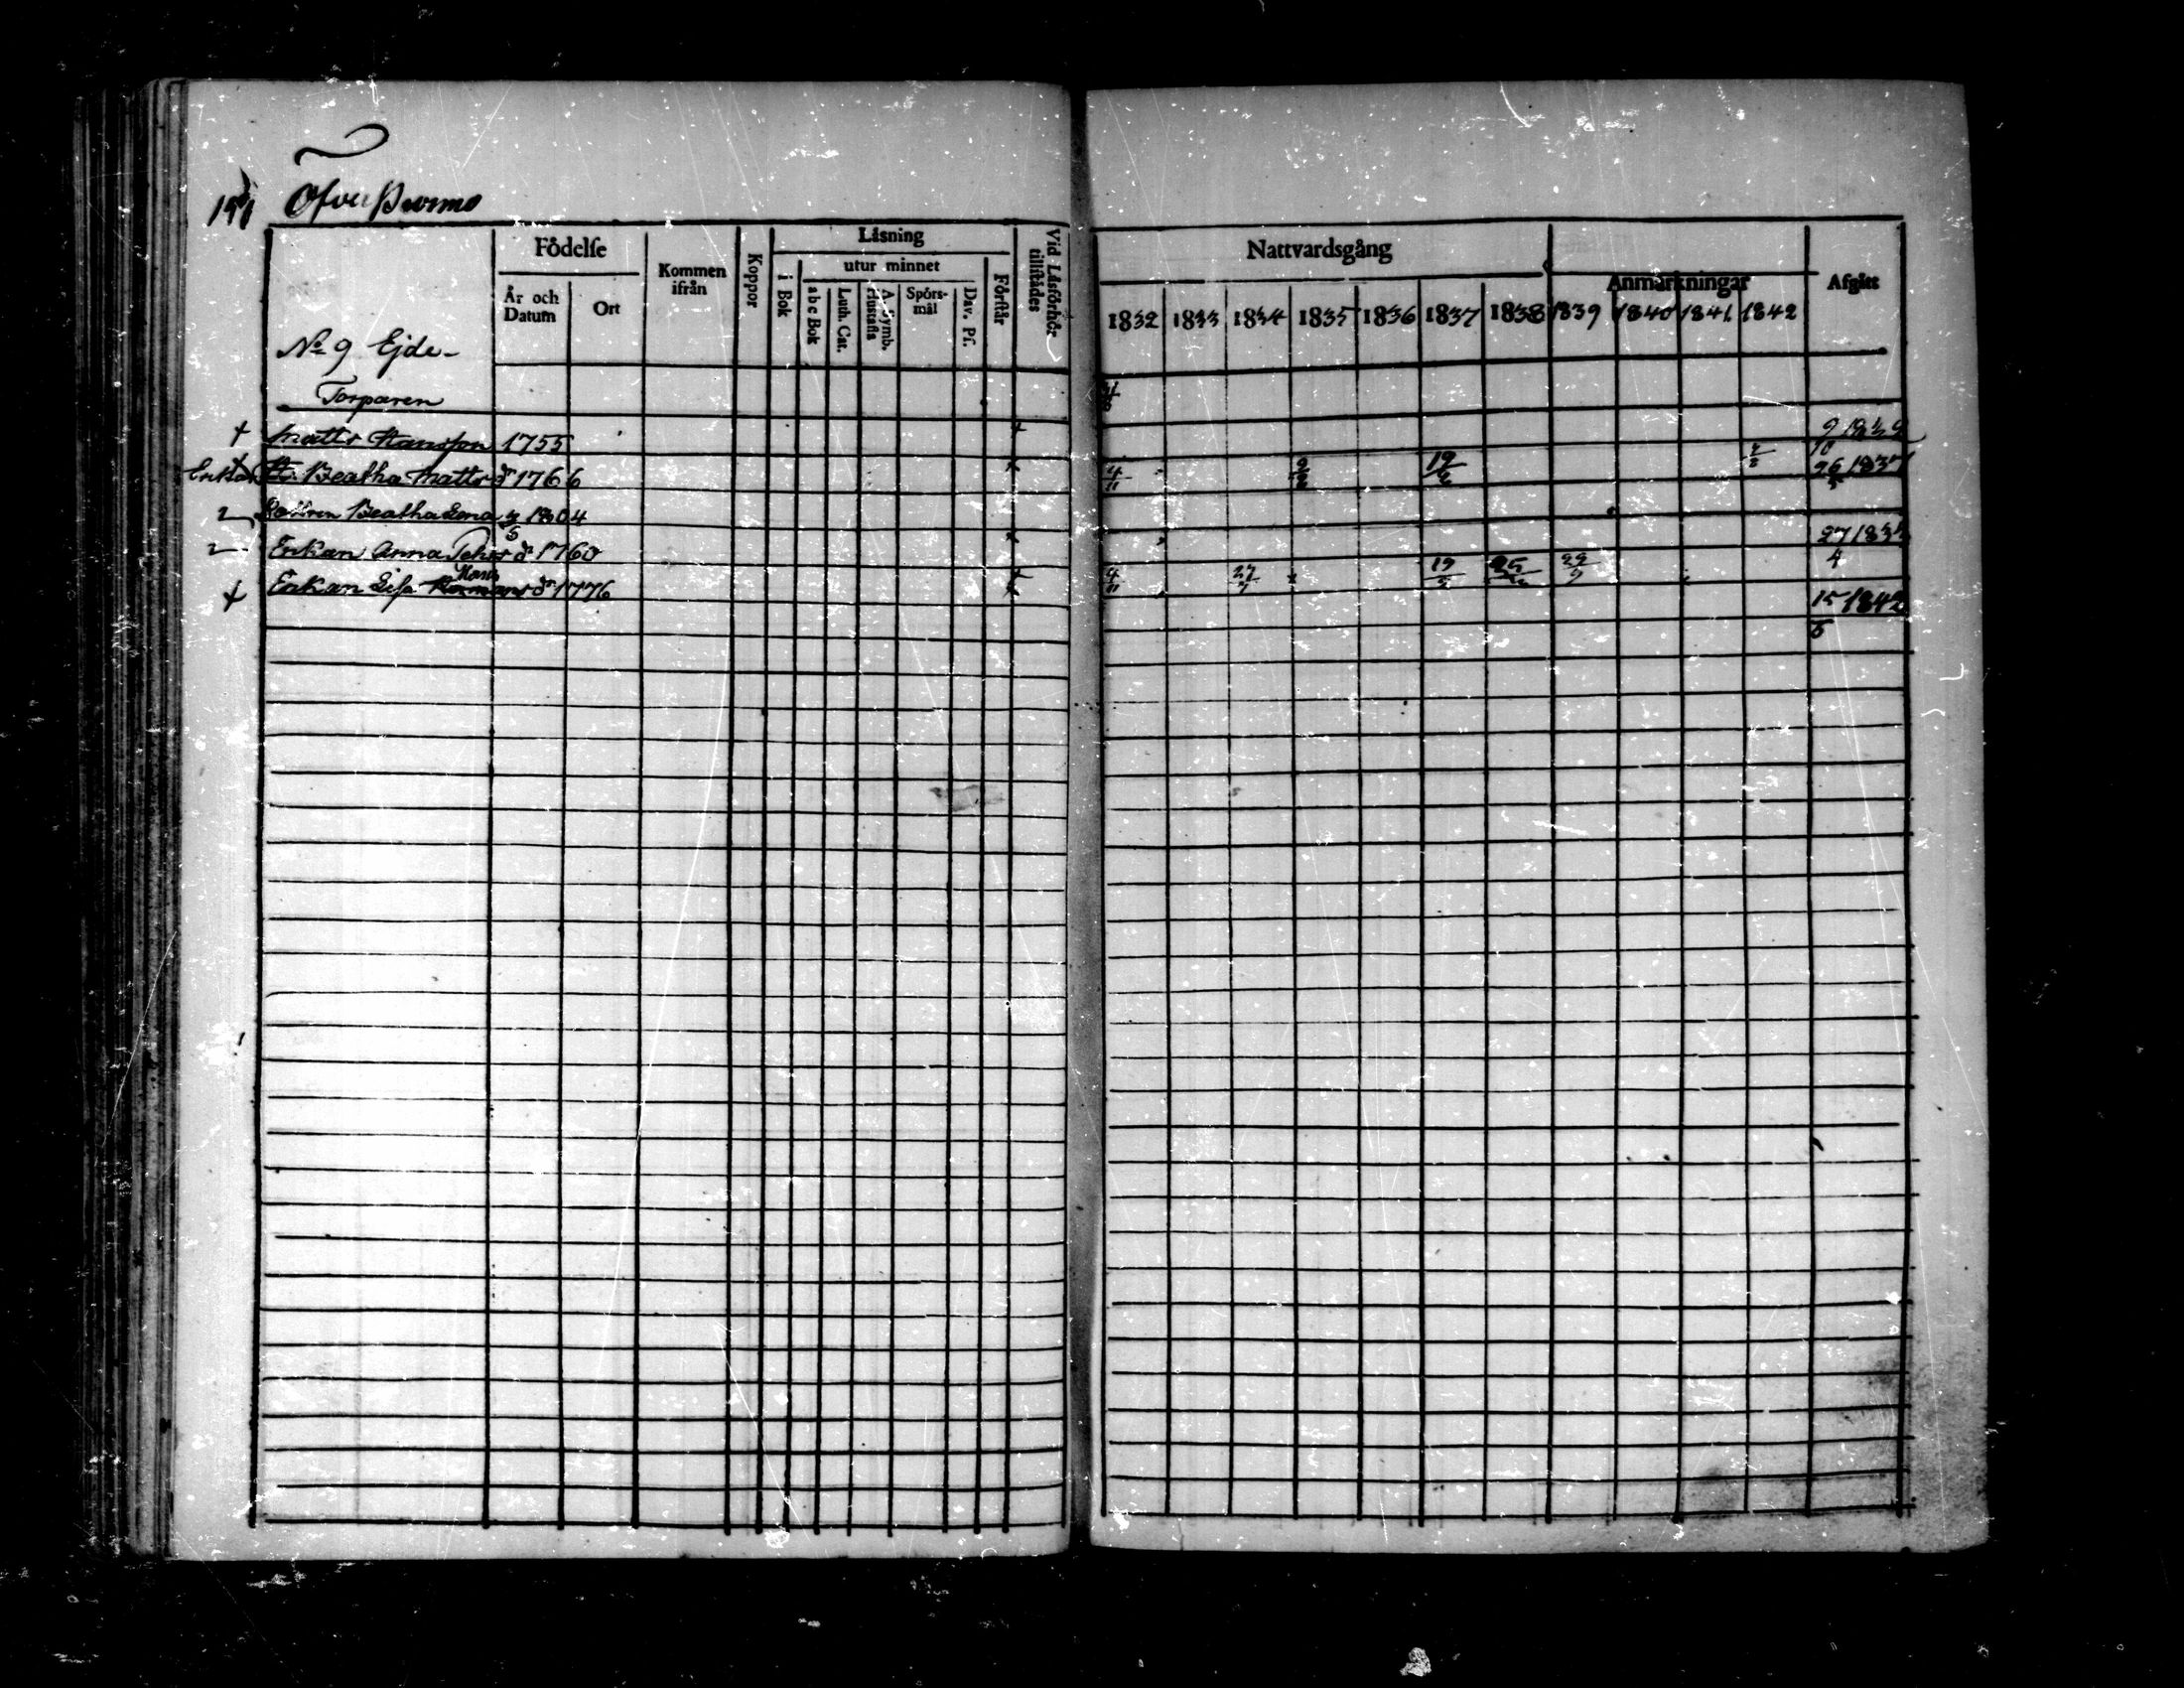 191 Öfver Purmo
Födelse
Kommen ifrån
Koppor
Läsning
Vid Läsförhör tillstädes
År och Datum
Ort
i Bok
utur minnet
Förstår
a b c Bok
Luth. Cat.
Spörs-mål
Dav. Ps.
No 9 Ejde-
Torparen
+ Matts Hansson 1755 +
Enkan H. Beatha Mattsdr 1766 +
Dottren Beatha Lena 1804
Enkan Anna Pehrsdr 1760 +
+ Enkan Lisa Hans Hermansdr 1776 +
Nattvardsgång
Anmärkningar
Afgått
1832 1833 1834 1835 1836 1837 1838 1839 1840 1841 1842
4/11 19/6 26 1837
27
4/11 27/7 19 25 29 4
15 1842
5